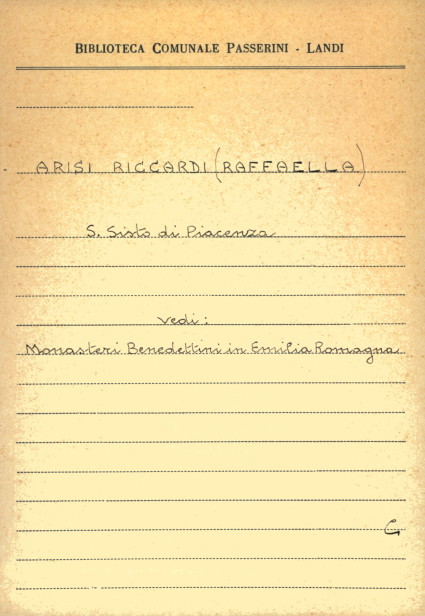 BIBLIOTECA COMUNALE PASSERINI - LANDI
ARISI RICCARDI (RAFFAELLA)
S. Sisto di Piacenza
vedi:
Monasteri Benedettini in Emilia Romagna